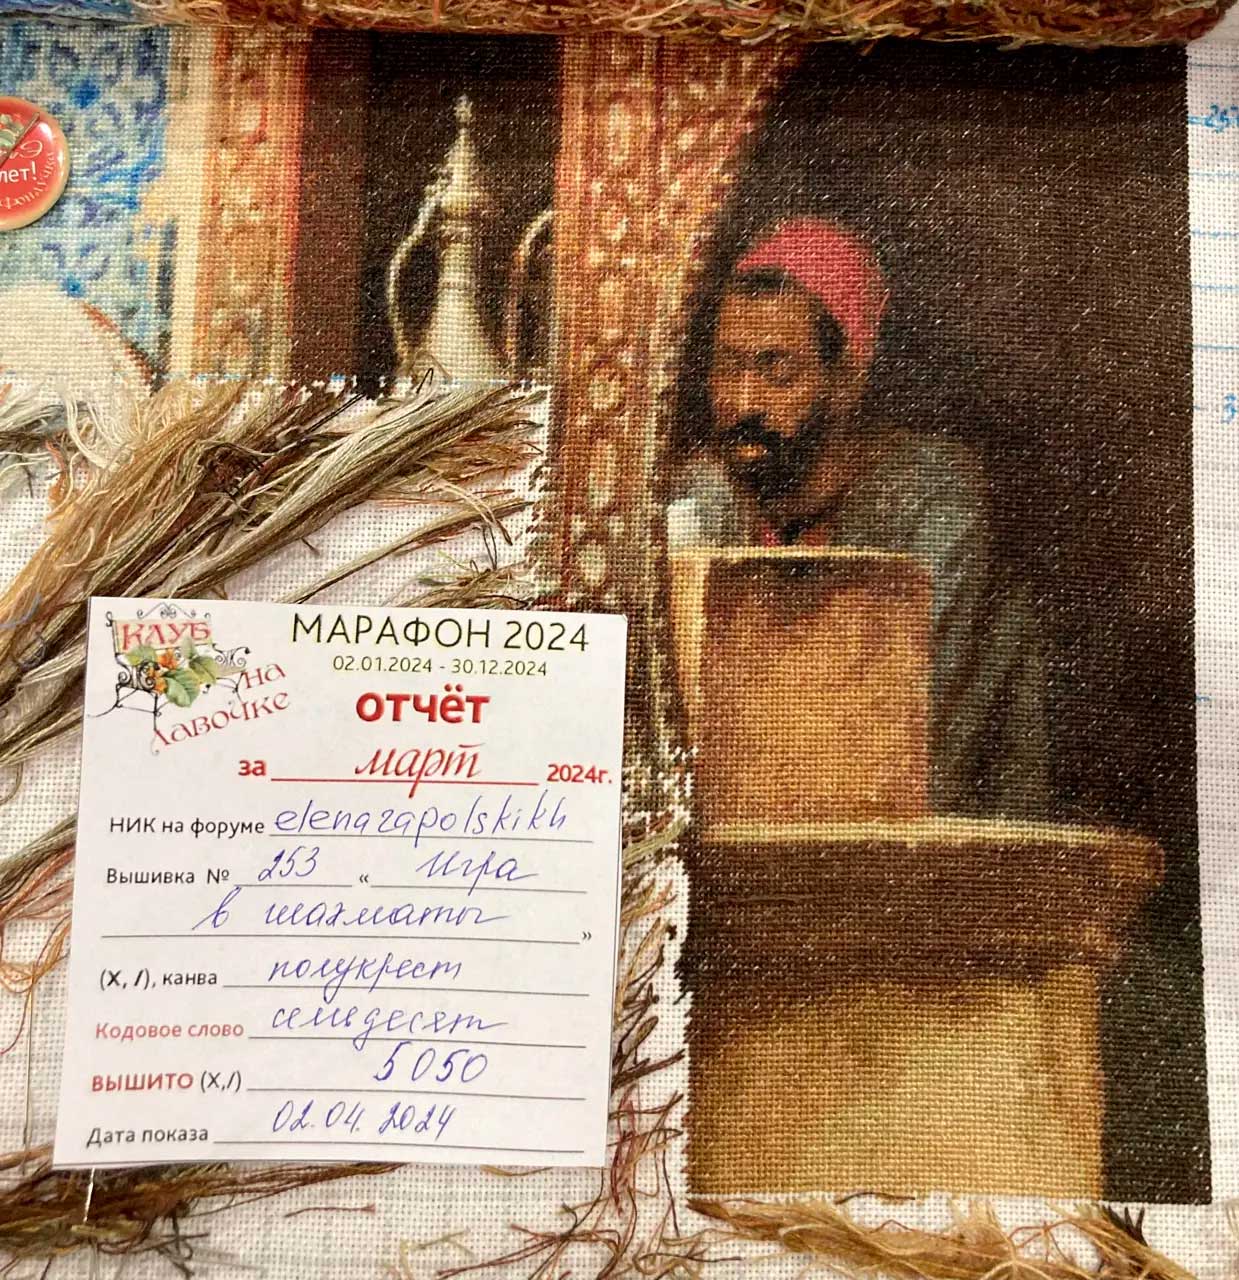 лет!
КЛУБ
на
лавочке
МАРАФОН 2024
02.01.2024 - 30.12.2024
отчёт
за март 2024г.
НИК на форуме elenazapolskikh
Вышивка № 253 « Игра
в шахматы »
(X, /), канва полукрест
Кодовое слово семьдесят
ВЫШИТО (X,/) 5050
Дата показа 02.04.2024